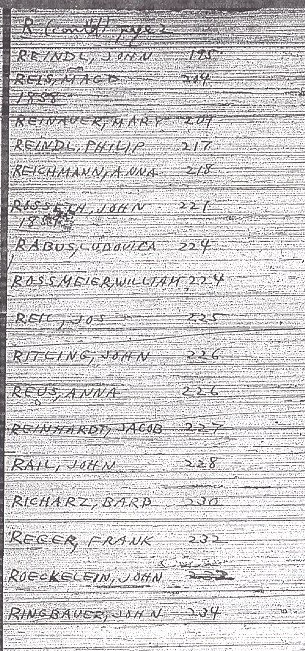 R (cont'd) page 2
REINDL, JOHN 195
REIS, MAGD 204
1858
REINAUER, MARY 204
REINDL, PHILIP 217
REICHMANN, ANNA 218
ROSSETH, JOHN 221
18
RABUS, LUDOVICA 224
ROSSMEIER, WILLIAM 224
REIL, JOS 225
RITLING, JOHN 226
REUS, ANNA 226
REINHARDT, JACOB 227
RAIL, JOHN 228
RICHARZ, BARB 230
REGER, FRANK 232
ROECKELEIN, JOHN
RINGBAUER, JOHN 234